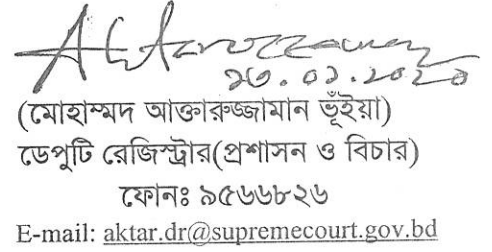 (মোহাম্মদ আক্তারুজ্জামান ভূঁইয়া)
ডেপুটি রেজিস্ট্রার(প্রশাসন ও বিচার)
ফোনঃ ৯৫৬৬৮২৬
E-mail: aktar.dr@supremecourt.gov.bd